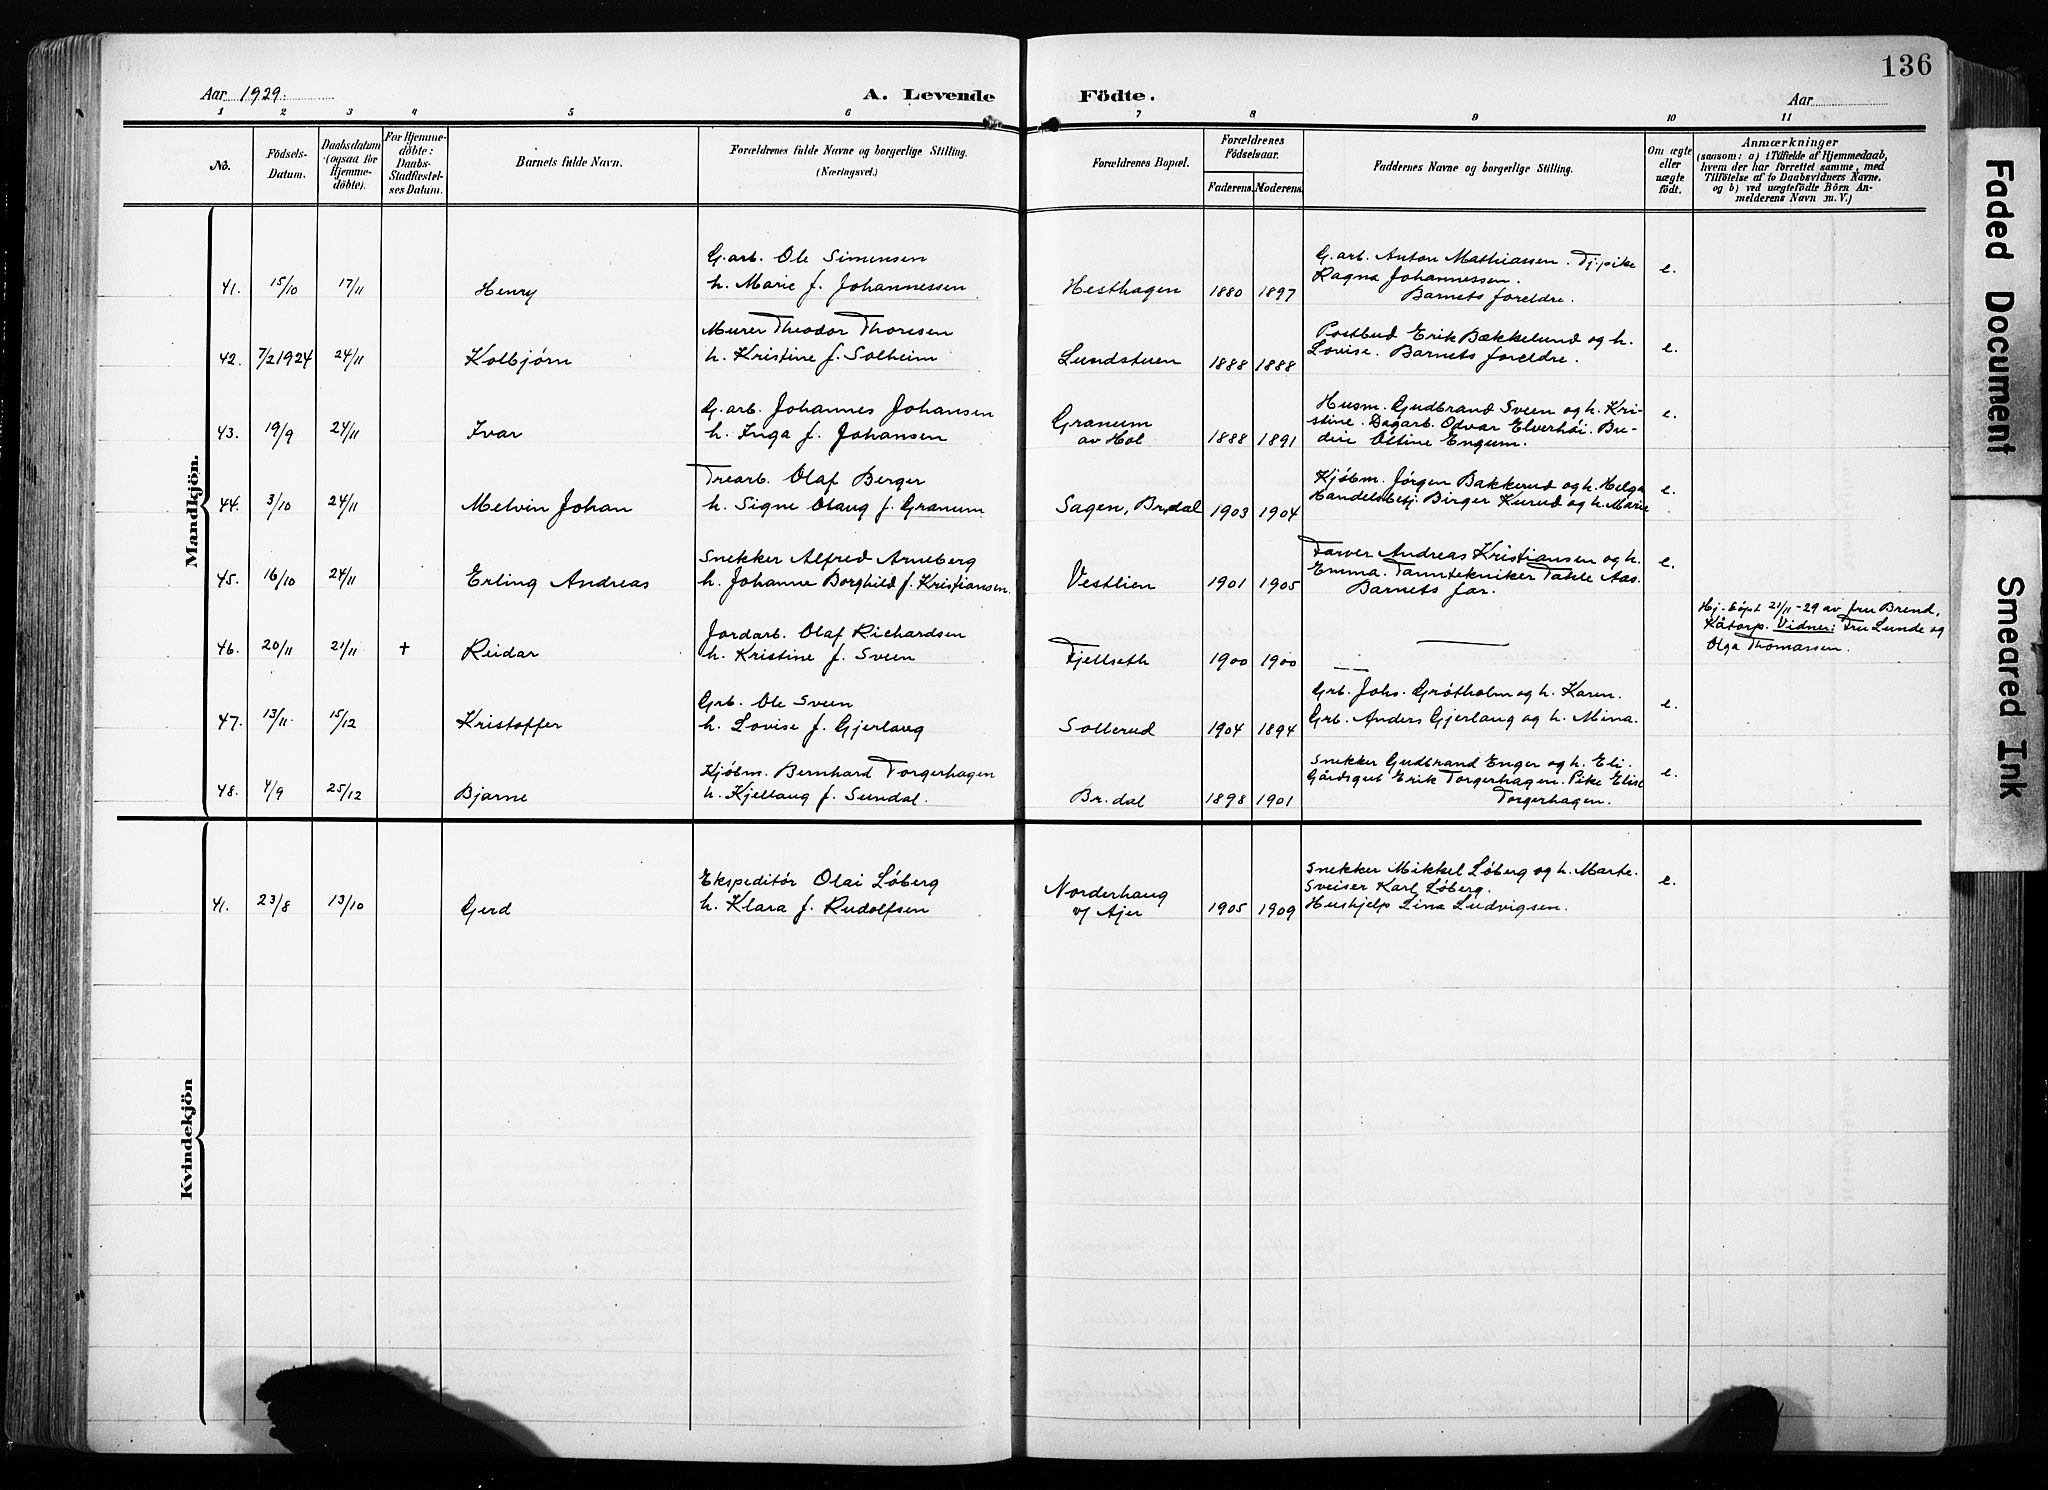 136
Aar 1929.
A. Levende Födte.
Aar
1 2 3 4 5 6 7 8 9 10 11
No.
Födsels-
Datum.
Daabsdatum
(ogsaa for
Hjemme-
döbte).
For Hjemme-
döbte:
Daabs-
Stadfæstel-
ses Datum.
Barnets fulde Navn.
Forældrenes fulde Navne og borgerlige Stilling.
(Næringsvei.)
Forældrenes Bopæl.
Forældrenes
Födselsaar.
Faderens. Moderens.
Faddernes Navne og borgerlige Stilling.
Om ægte
eller
uægte
födt.
Anmærkninger
(saasom: a) i Tilfælde af Hjemmedaab,
hvem der har forrettet samme, med
Tilföielse af to Daabsvidners Navne.
og b) ved uægtefödte Börn An-
melderens Navn m. V.)
Mandkjön.
41. 15/10 17/11 Henry
G.arb. Ole Simensen
h. Marie f. Johannessen
Hesthagen 1880 1897
G.arb. Anton Mathiassen. Tj.pike
Ragna Johannessen.
Barnets foreldre.
e.
42. 7/2 1924 24/11 Kolbjørn
Murer Theodor Thoresen
h. Kristine f. Solheim
Lundstuen 1888 1888
Postbud Erik Bækkelund og h.
Lovise. Barnets foreldre.
e.
43. 19/9 24/11 Ivar
G.arb. Johannes Johansen
h. Inga f. Johansen
Granum
av Hol 1888 1891
Husm. Gudbrand Sveen og h. Kri-
stine. Dagarb. Odvar Elverhøi. Bu-
deie Oltine Engum.
e.
44. 3/10 24/11 Melvin Johan
Trearb. Olaf Berger
h. Signe Olaug f. Granum
Sagen, Br.dal 1903 1904
Kjøbm. Jørgen Bakkerud og h. Helga
Handelsbetj. Birger Kurud og h. Marie
e.
45. 16/10 24/11 Erling Andreas
Snekker Alfred Arneberg
h. Johanne Borghild f. Kristiansen.
Vestlien 1901 1905
Farver Andreas Kristiansen og h.
Emma. Tanntekniker Tahle Aas.
Barnets far.
e.
46. 20/11 21/11 + Reidar
Jordarb. Olaf Richardsen
h. Kristine f. Sveen
Fjellseth 1900 1900
Hj. døpt 21/11-29 av fru Brend,
Kåtorp. Vidner: Fru Lunde og
Olga Thomassen.
47. 13/11 15/12 Kristoffer
Grb. Ole Sveen
h. Lovise f. Gjerlaug
Sollerud 1904 1894
Grb. Johs. Grøtholm og h. Karen.
Grb. Anders Gjerlaug og h. Mina.
e.
48. 4/9 25/12 Bjarne
Kjøbm. Bernhard Torgerhagen
h. Kjellaug f. Sundal.
Br.dal 1898 1901
Snekker Gudbrand Enger og h. Eli.
Gårdsgut Erik Torgerhagen. Pike Elise
Torgerhagen.
e.
Kvindekjön
41. 23/8 13/10 Gerd
Ekspeditør Olai Løberg
h. Klara f. Rudolfsen
Norderhaug
v/ Ajer 1905 1909
Snekker Mikkel Løberg og h. Marte.
Sveiser Karl Løberg.
Hushjelp Lina Ludvigsen.
e.
Faded Document
Smeared Ink